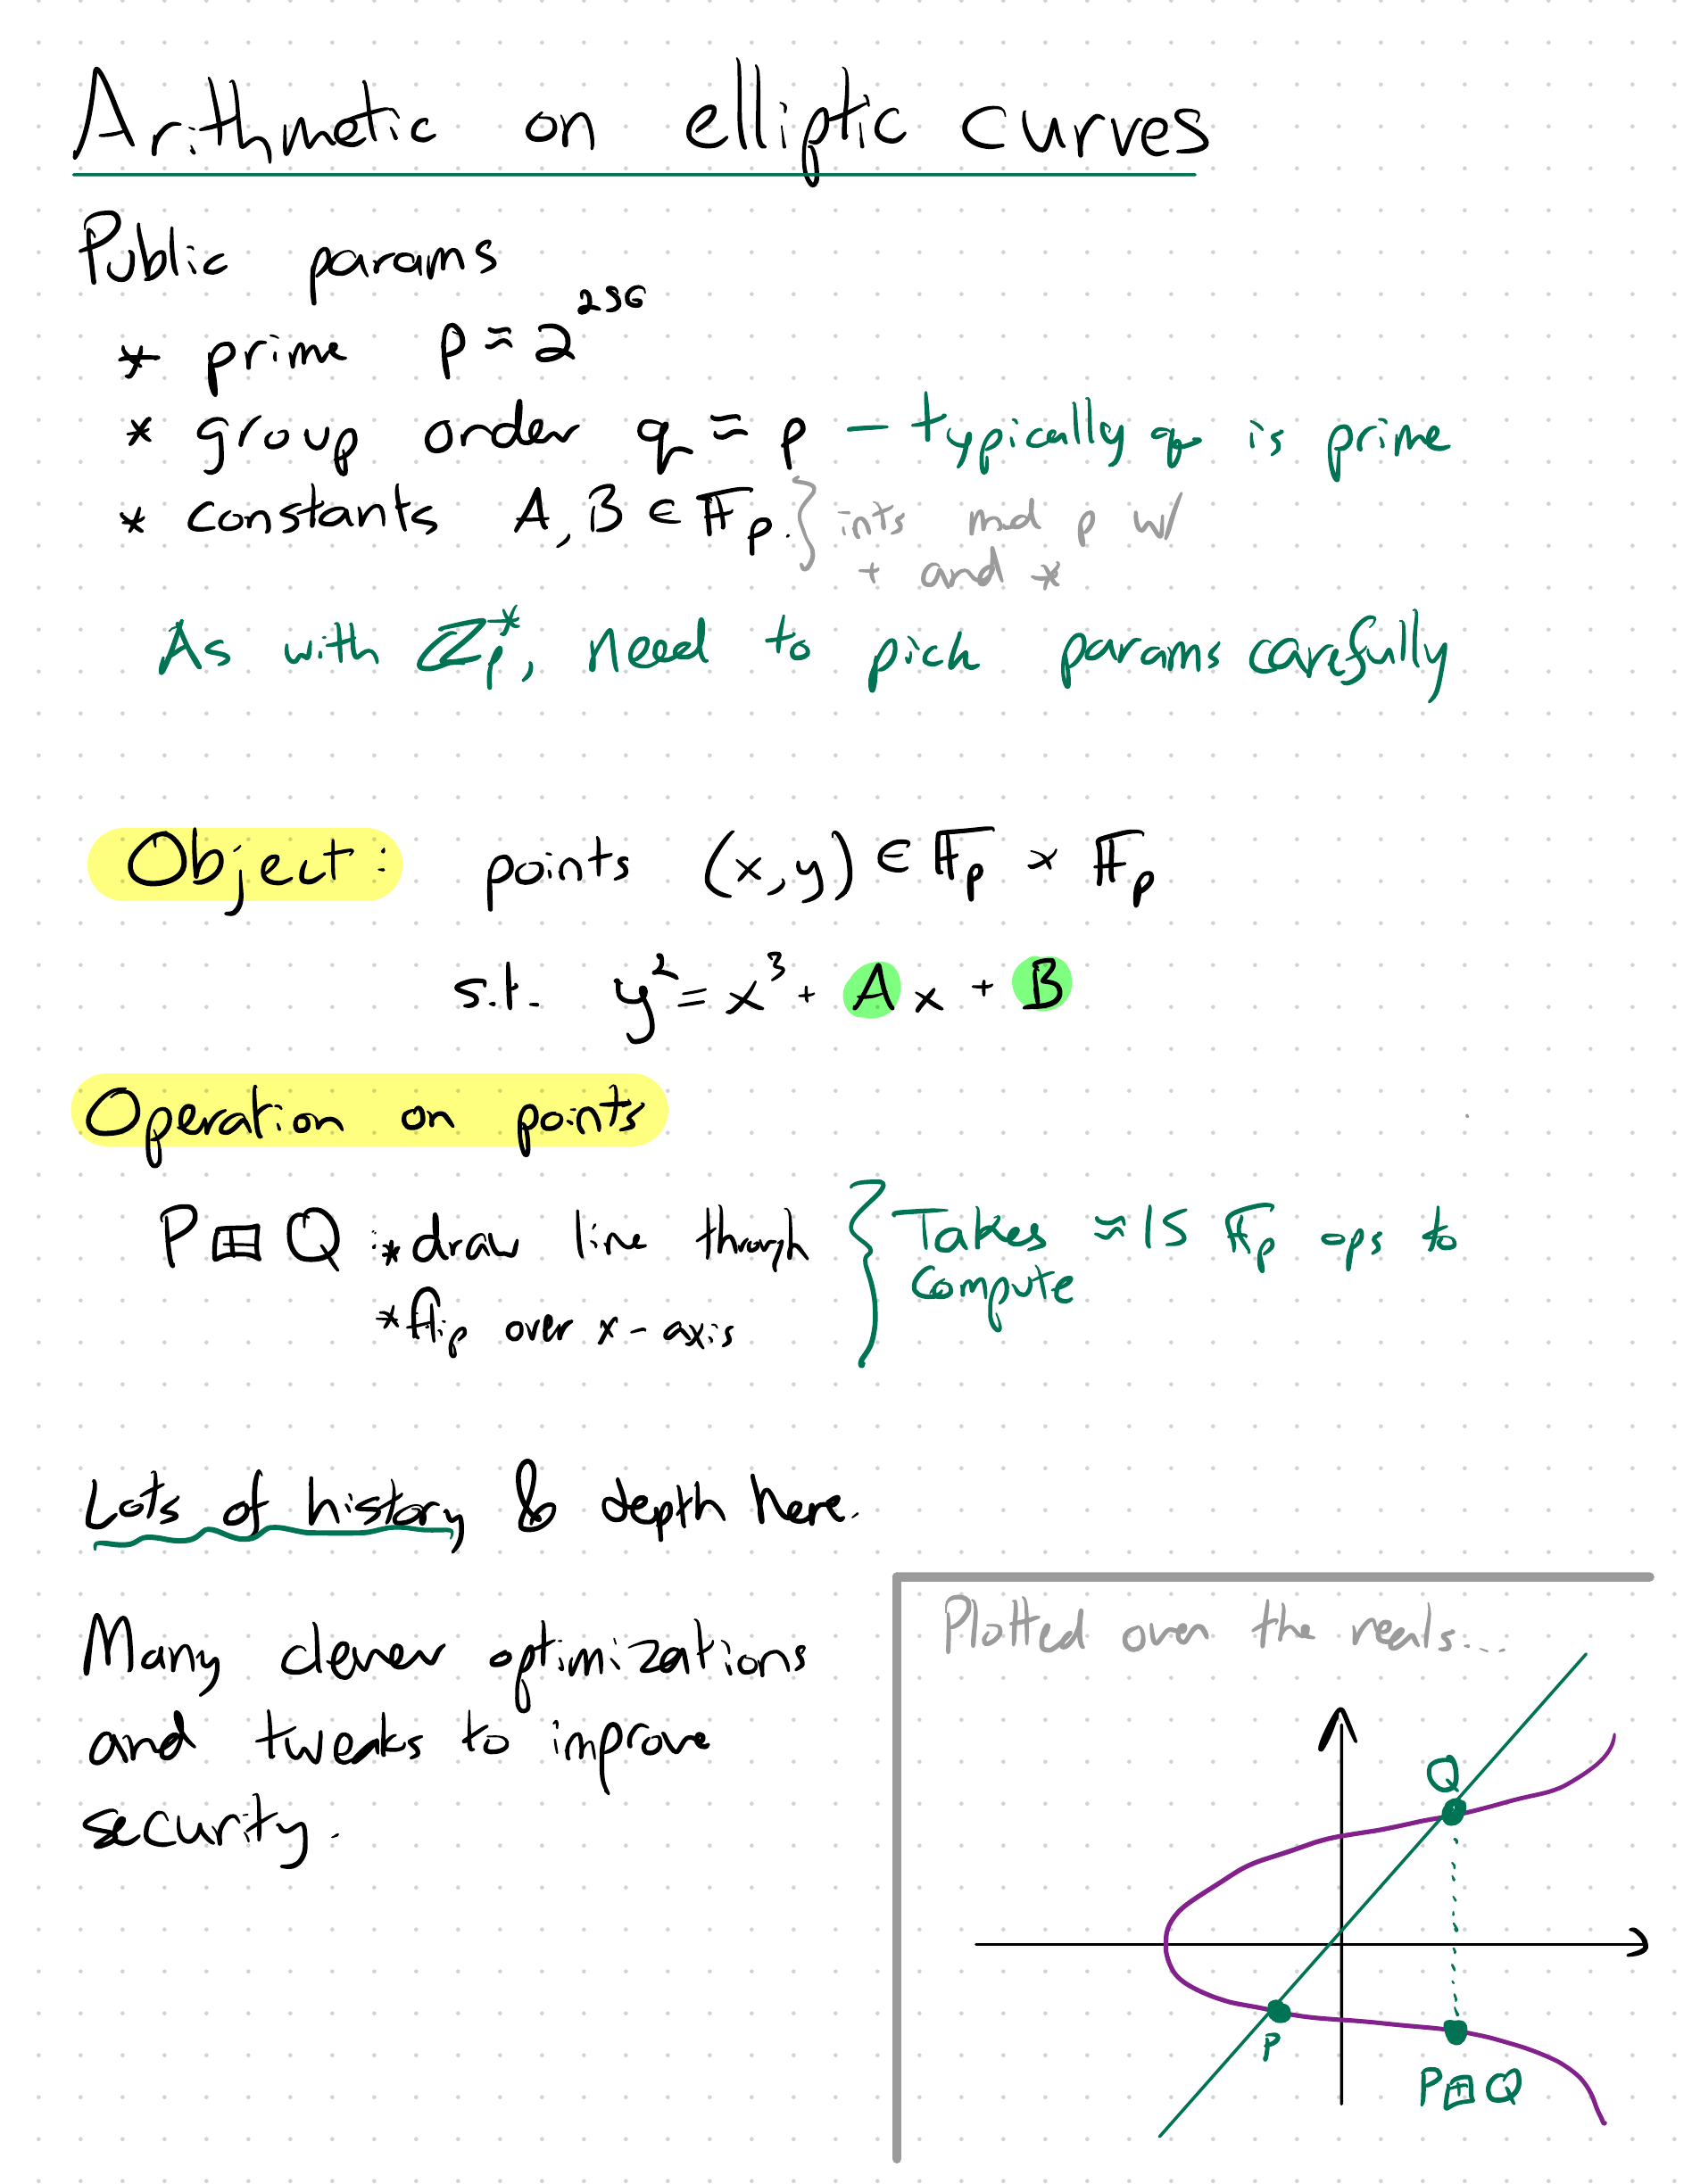 Arithmetic on elliptic curves
Public params
* prime p ≈ 2^256
* group order q ≈ p – typically q is prime
* constants A, B ∈ 𝔽p. } ints mod p w/
+ and *
As with ℤp*, need to pick params carefully
Object: points (x,y) ∈ 𝔽p × 𝔽p
s.t. y² = x³ + A x + B
Operation on points
P ⊞ Q : * draw line through } Takes ≈ 15 𝔽p ops to
compute
* flip over x-axis
Lots of history & depth here.
Many clever optimizations
and tweaks to improve
security.
Plotted over the reals...
Q
P
P ⊞ Q